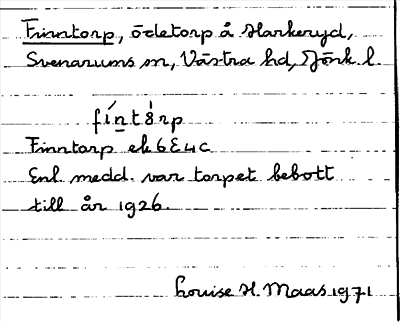 Finntorp, ödetorp å Harkeryd,
Svenarums sn, Västra hd, Jönk. l.
fíntórp
Finntorp ek 6E4c
Enl. medd. var torpet bebott
till år 1926.
Louise H. Maas 1971